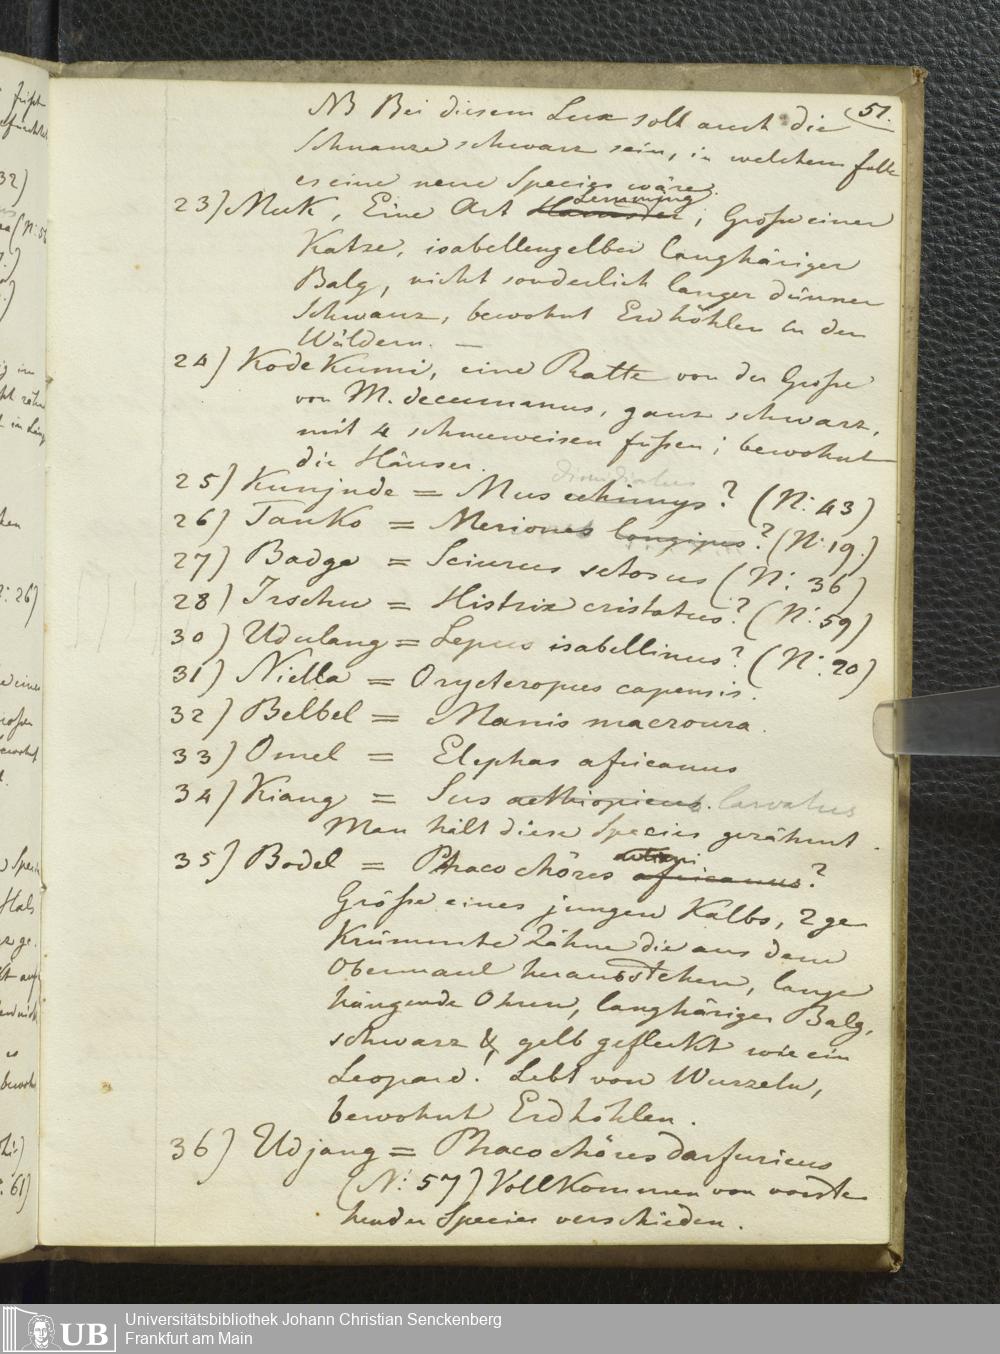 51.
NB Bei diesem Lux soll auch die
Schnauze schwarz sein, in welchem falle
es eine neue Species wäre.
23) Muk, Eine Art Hamster Lemming; Große einer
Katze, isabellengelber langhäriger
Balg, nicht sonderlich langer dünner
Schwanz, bewohnt Erdhöhlen in den
Wäldern. —
24) Kodekumi, eine Ratte von der Große
von M. decumanus, ganz schwarz,
mit 4 schneeweisen füßen; bewohnt
die Häuser.
dimidiatus
25) Kunjude = Mus echimys? (N: 43)
26) Tanko = Meriones longipes? (N: 19.)
27) Badga = Sciurus setosus (N: 36)
28) Irschu = Histrix cristatus? (N: 59)
30) Udulang = Lepus isabellinus? (N: 20)
31) Niella = Orycteropus capensis.
32) Belbel = Manis macroura.
33) Omel = Elephas africanus
34) Kiang = Sus aethiopicus. larvatus
Man hält diese Species gezähmt.
35) Bodel = Phacochöres africanus?
Größe eines jungen Kalbs, 2 ge
krümmte Zähne die aus dem
Obermaul herausstehen, lange
hängende Ohren, langhäriger Balg,
schwarz & gelb gefleckt wie ein
Leopard. Lebt von Wurzeln,
bewohnt Erdhöhlen.
36) Udjang = Phacochöres darfuricus
(N: 57) Vollkommen von vorste
hender Species verschieden.
UB
Universitätsbibliothek Johann Christian Senckenberg
Frankfurt am Main